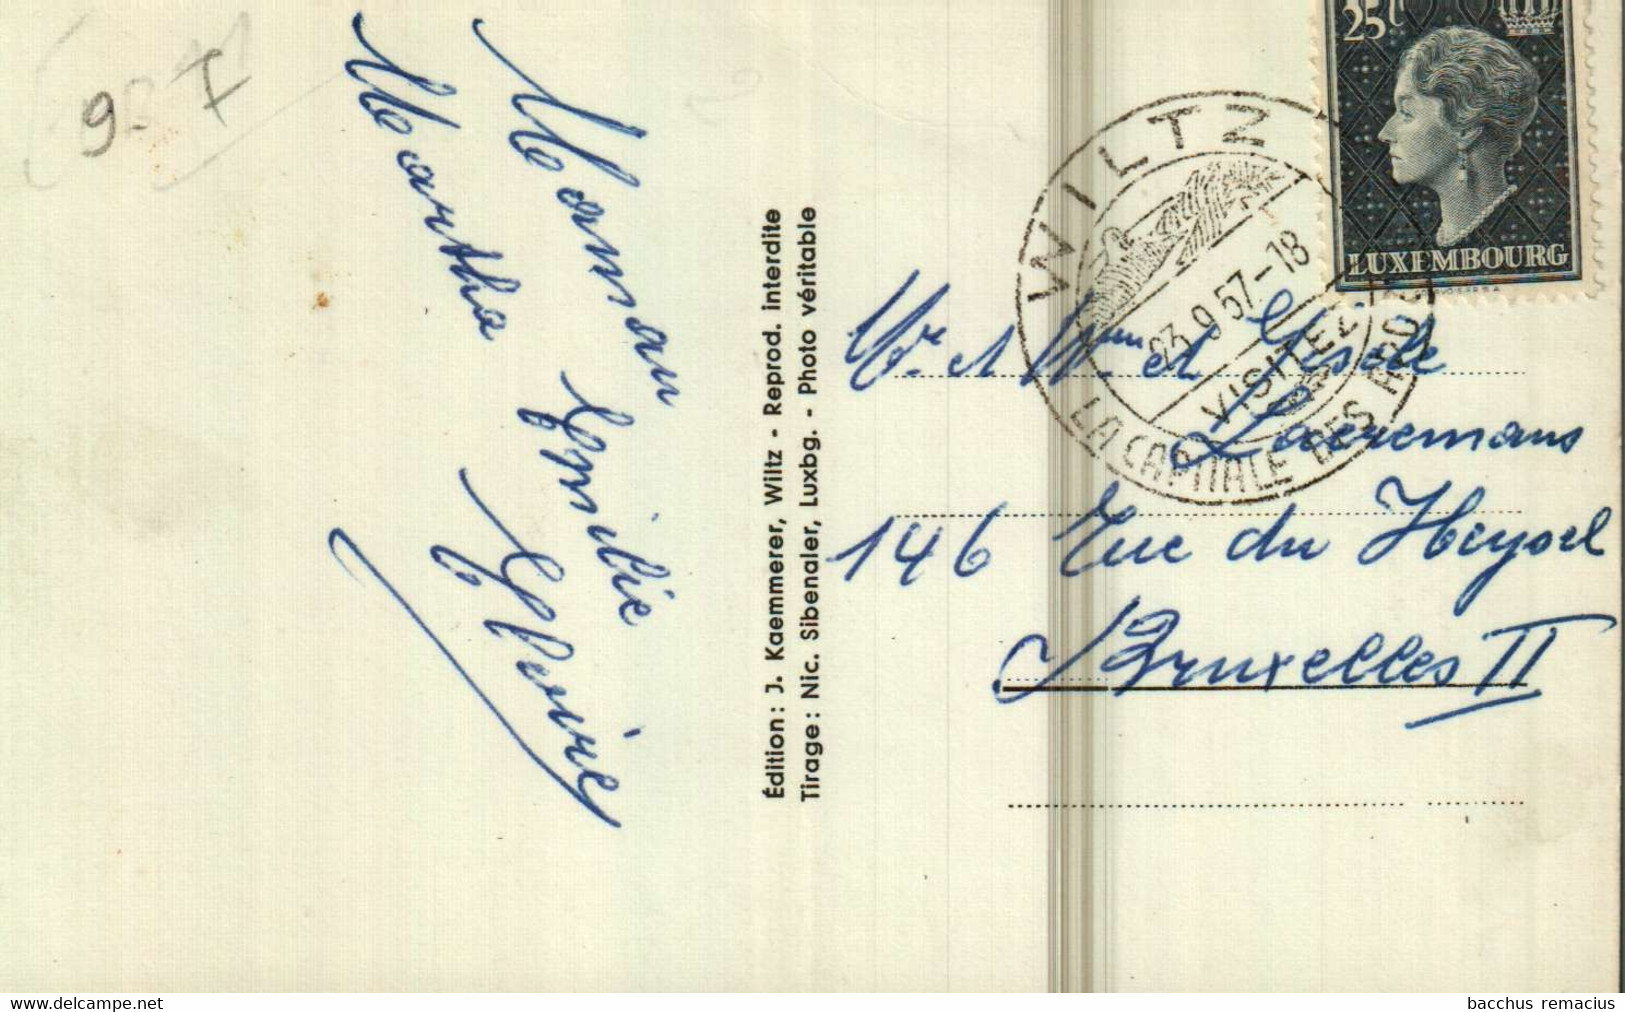 95 I
Maman
Martha
Emilie
Édition : J. Kaemmerer, Wiltz - Reprod. interdite
Tirage : Nic. Sibenaler, Luxbg. - Photo véritable
25
LUXEMBOURG
WILTZ
23.9.57-18
VISITEZ
LA CAPITALE DES ARD
Mr. et Mme et Gisèle
Laeremans
146 Rue du Heysel
Bruxelles II
www.delcampe.net
bacchus remacius